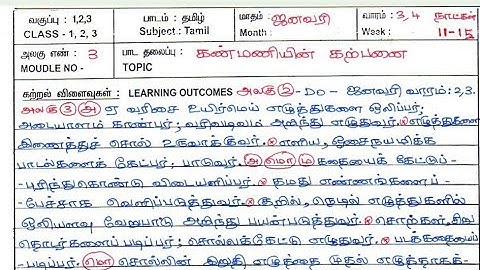 வகுப்பு : 1,2,3 பாடம் : தமிழ் மாதம் ஜனவரி வாரம் : 3,4 நாட்கள்
CLASS - 1, 2, 3 Subject : Tamil Month : Week : 11-15
அலகு எண் : 3 பாட தலைப்பு : கண்மணியின் கற்பனை
MOUDLE NO - TOPIC
கற்றல் விளைவுகள் : LEARNING OUTCOMES அலகு 2 - DO - ஜனவரி வாரம்: 2,3.
அலகு 3 அ ஏ வரிசை உயிர்மெய் எழுத்துகளை ஒலிப்பர்;
அடையாளம் காண்பர்; வரிவடிவம் அறிந்து எழுதுவர். எழுத்துகளை
இணைத்துச் சொல் உருவாக்குவர். எளிய, ஓசைநயமிக்க
பாடல்களைக் கேட்பர்; பாடுவர். அ மொ ம கதையைக் கேட்டுப் -
- புரிந்துகொண்டு விடையளிப்பர். தமது எண்ணங்களைப் -
- பேச்சாக வெளிப்படுத்துவர். குறில், நெடில் எழுத்துகளில்
ஒலியளவு வேறுபாடு அறிந்து பயன்படுத்துவர். சொற்கள், சிறு
தொடர்களைப் படிப்பர்; சொல்லக்கேட்டு எழுதுவர். படக்கதையைப்
- படிப்பர். மொ சொல்லின் இறுதி எழுத்தை முதல் எழுத்தாகக் -